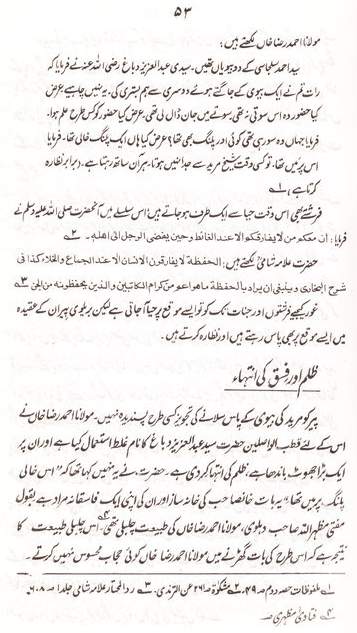 ۵۳
مولانا احمد رضا خاں لکھتے ہیں:
سید احمد سلجاسی کے دو بیویاں تھیں۔ سیدی عبدالعزیز دباغ رضی اللہ عنہ نے فرمایا کہ
رات تم نے ایک بیوی کے جاگتے ہوئے دوسری سے ہم بستری کی۔ یہ نہیں چاہیے عرض
کیا حضور وہ اس وقت سوتی تھی۔ فرمایا سوتی نہ تھی سوتے میں جان ڈال لی تھی۔ عرض کیا حضور کو کس طرح علم ہوا۔
فرمایا جہاں وہ سو رہی تھی کوئی اور پلنگ بھی تھا؟ عرض کیا ہاں ایک پلنگ خالی تھا۔ فرمایا
اس پر میں تھا۔ تو کسی وقت شیخ مرید سے جدا نہیں ہوتا، ہر آن ساتھ رہتا ہے، برابر نظارہ
کرتا ہے۔ ۱؎
فرشتے بھی اس وقت حیا سے ایک طرف ہو جاتے ہیں، اس سلسلے میں آنحضرت صلی اللہ علیہ وسلم نے
فرمایا: ان معکم من لا یفارقکم الا عند الغائط وحین یفضی الرجل الی اهله۔ ۲؎
حضرت علامہ شامیؒ لکھتے ہیں: الحفظة لا یفارقون الانسان الا عند الجماع والخلاء کذا فی
شرح البخاری و ینبغی ان یراد بالحفظة ماهو اعم من کرام الکاتبین والذین یحفظونه من الجن ۳؎
غور کیجیے فرشتوں اور جنات تک کو تو ایسے موقع پر حیا آ جاتی ہے لیکن بریلوی پیران کے عقیدہ
میں ایسے موقع پر بھی پاس رہتے ہیں اور نظارہ کرتے ہیں۔
ظلم اور فسق کی انتہاء
پیر کو مرید کی بیوی کے پاس سلانے کی تجویز کسی طرح پسندیدہ نہیں۔ مولانا احمد رضا خاں نے
اس کے لئے قطب الواصلین حضرت سید عبدالعزیز دباغ کا نام غلط استعمال کیا ہے اور ان پر
ایک بڑا جھوٹ باندھا ہے، ظلم کی انتہا کر دی ہے۔ حضرت نے یہ نہیں کہا تھا کہ "اس خالی
پلنگ پر میں تھا" یہ بات خانصاحب کی خانہ ساز اور ان کی اپنی ایک فاسقانہ مراد ہے بقول
مفتی مظہر اللہ صاحب دہلوی، مولانا احمد رضا خاں کی طبیعت چلبلی تھی۔ ۴؎ اس چلبلی طبیعت کا
نتیجہ ہے کہ اس طرح کی بات گھڑنے میں مولانا احمد رضا خاں کوئی حجاب محسوس نہیں کرتے۔
۱؎ ملفوظات حصہ دوم صہ ۴۹، ۲؎ مشکوٰۃ صہ ۲۶۱ عن الترمذی۔ ۳؎ رد المحتار علامہ شامی جلد۱ صہ ۶۰۸
۴؎ فتاویٰ مظہری صہ